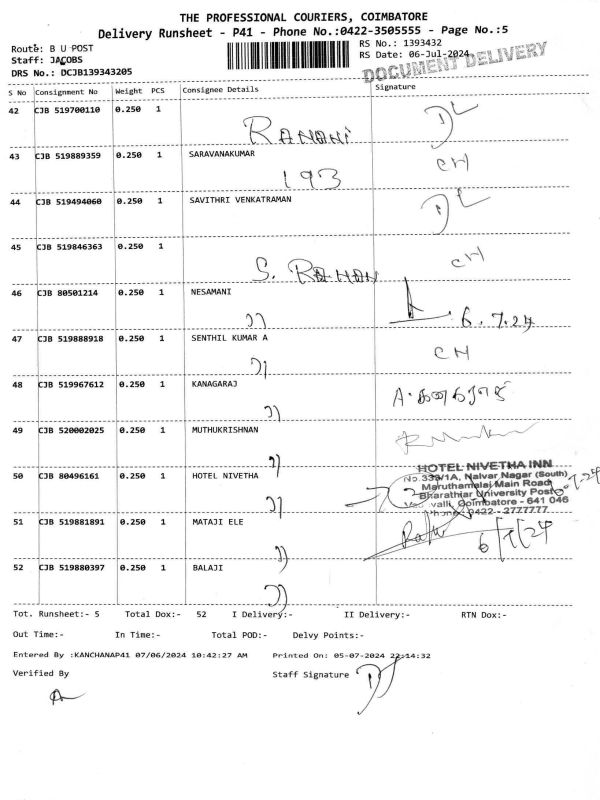 THE PROFESSIONAL COURIERS, COIMBATORE
Delivery Runsheet - P41 - Phone No.:0422-3505555 - Page No.:5
Route: B U POST
RS No.: 1393432
Staff: JACOBS
RS Date: 06-Jul-2024
DRS No.: DCJB139343205
DOCUMENT DELIVERY
S No Consignment No Weight PCS Consignee Details Signature
42 CJB 519700110 0.250 1
DL
43 CJB 519889359 0.250 1 SARAVANAKUMAR CH
193
44 CJB 519494060 0.250 1 SAVITHRI VENKATRAMAN DL
45 CJB 519846363 0.250 1 CH
S. RAMAN
46 CJB 80501214 0.250 1 NESAMANI
)) 6.7.24
47 CJB 519888918 0.250 1 SENTHIL KUMAR A CH
))
48 CJB 519967612 0.250 1 KANAGARAJ A. கனகராஜ்
))
49 CJB 520002025 0.250 1 MUTHUKRISHNAN
))
50 CJB 80496161 0.250 1 HOTEL NIVETHA
))
HOTEL NIVETHA INN
No.333/1A, Nalvar Nagar (South)
Maruthamalai Main Road
Bharathiar University Post
Coimbatore - 641 046
Phone: 0422 - 2777777
51 CJB 519881891 0.250 1 MATAJI ELE
)) 6/7/24
52 CJB 519880397 0.250 1 BALAJI
))
Tot. Runsheet:- 5 Total Dox:- 52 I Delivery:- II Delivery:- RTN Dox:-
Out Time:- In Time:- Total POD:- Delvy Points:-
Entered By :KANCHANAP41 07/06/2024 10:42:27 AM Printed On: 05-07-2024 22:14:32
Verified By Staff Signature